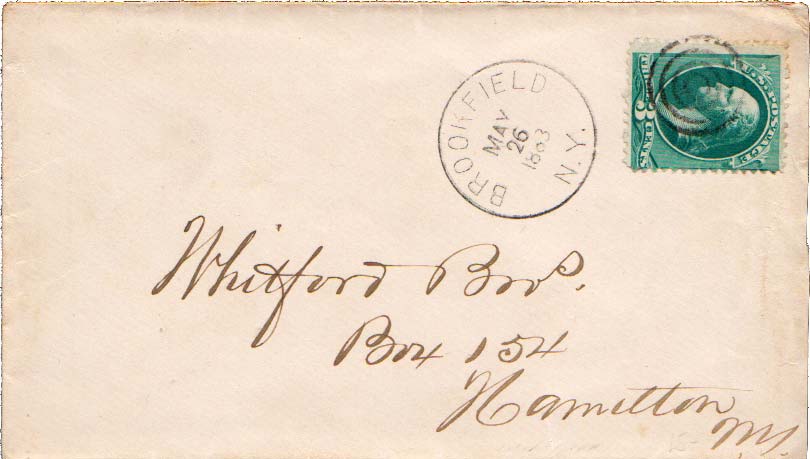 BROOKFIELD N.Y.
MAY
26
1883
U.S. POSTAGE
3 CENTS
Whitford Bros.
Box 154
Hamilton
N.Y.